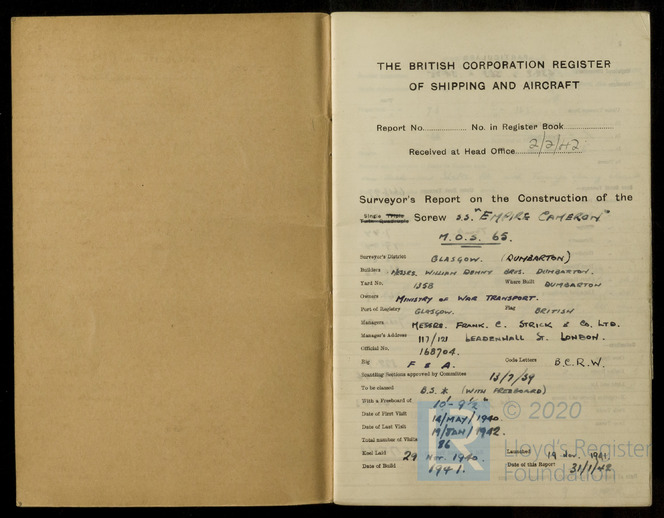 THE BRITISH CORPORATION REGISTER
OF SHIPPING AND AIRCRAFT
Report No. No. in Register Book
Received at Head Office 2/2/42
Surveyor's Report on the Construction of the
Single Triple
Twin Quadruple Screw S.S. "EMPIRE CAMERON"
M.O.S. 65.
Surveyor's District GLASGOW. (DUMBARTON)
Builders MESSRS. WILLIAM DENNY BROS. DUMBARTON.
Yard No. 1358 Where Built DUMBARTON
Owners MINISTRY OF WAR TRANSPORT.
Port of Registry GLASGOW. Flag BRITISH
Managers MESSRS. FRANK. C. STRICK & CO. LTD.
Manager's Address 117/121 LEADENHALL ST. LONDON.
Official No. 168704.
Rig F & A. Code Letters B.C.R.W.
Scantling Sections approved by Committee 13/7/39
To be classed B.S. * (WITH FREEBOARD)
With a Freeboard of 10'-9½"
Date of First Visit 14/MAY/1940.
Date of Last Visit 19/JAN/1942.
Total number of Visits 86
Keel Laid 29 NOV. 1940. Launched 19 NOV. 1941
Date of Build 1941. Date of this Report 31/1/42
© 2020
Lloyd's Register
Foundation